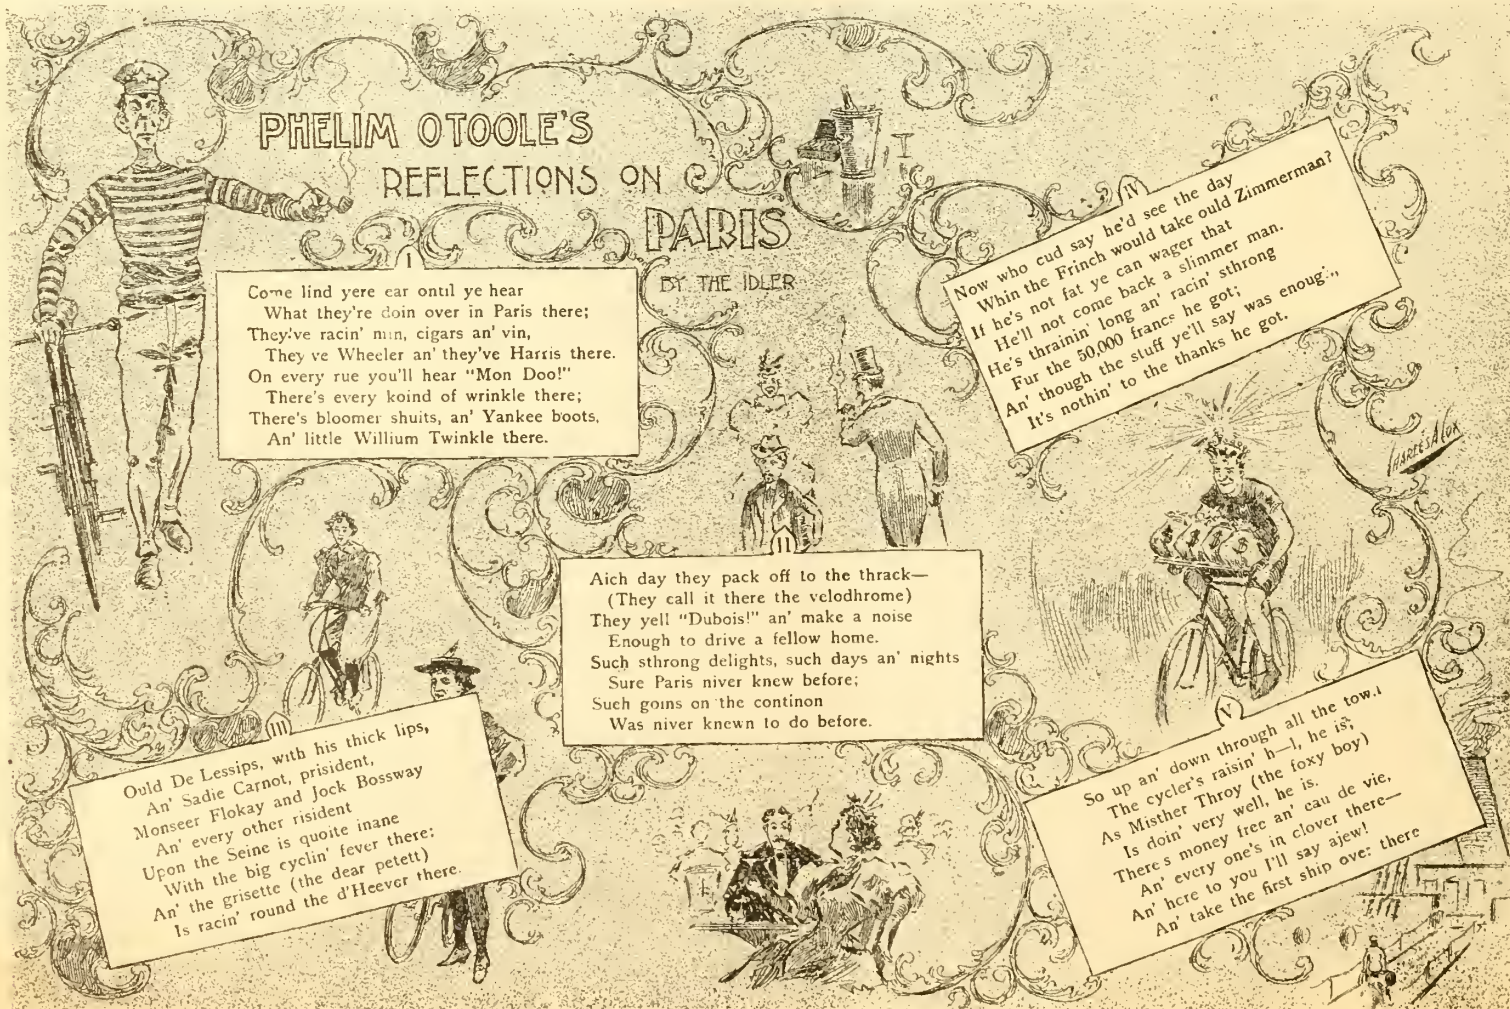 PHELIM OTOOLE'S
REFLECTIONS ON
PARIS
BY THE IDLER
I
Come lind yere ear ontil ye hear
What they're doin over in Paris there;
They've racin' min, cigars an' vin,
They ve Wheeler an' they've Harris there.
On every rue you'll hear "Mon Doo!"
There's every koind of wrinkle there;
There's bloomer shuits, an' Yankee boots,
An' little Willium Twinkle there.
II
Aich day they pack off to the thrack—
(They call it there the velodhrome)
They yell "Dubois!" an' make a noise
Enough to drive a fellow home.
Such sthrong delights, such days an' nights
Sure Paris niver knew before;
Such goins on the continon
Was niver knewn to do before.
III
Ould De Lessips, with his thick lips,
An' Sadie Carnot, prisident,
Monseer Flokay and Jock Bossway
An' every other risident
Upon the Seine is quoite inane
With the big cyclin' fever there;
An' the grisette (the dear petett)
Is racin' round the d'Heever there.
IV
Now who cud say he'd see the day
Whin the Frinch would take ould Zimmerman?
If he's not fat ye can wager that
He'll not come back a slimmer man.
He's thrainin' long an' racin' sthrong
Fur the 50,000 francs he got;
An' though the stuff ye'll say was enough,
It's nothin' to the thanks he got.
CHARLES A COX
V
So up an' down through all the town
The cycler's raisin' h—l, he is;
As Misther Throy (the foxy boy)
Is doin' very well, he is.
There s money free an' eau de vie,
An' every one's in clover there—
An' here to you I'll say ajew!
An' take the first ship over there